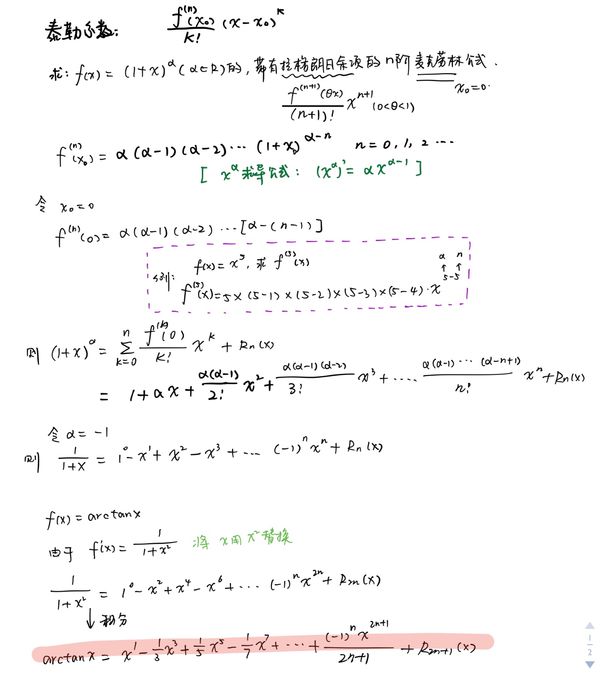 泰勒系数: f⁽ⁿ⁾(x₀)/K! (x-x₀)ᴷ
求: f(x) = (1+x)^α (α∈R)的, 带有拉格朗日余项的n阶麦克劳林公式.
f⁽ⁿ⁺¹⁾(θx)/(n+1)! xⁿ⁺¹ (0<θ<1) x₀=0.
f⁽ⁿ⁾(x₀) = α(α-1)(α-2)··· (1+x)^(α-n) n=0,1,2···
[ x^α求导公式: (x^α)' = αx^(α-1) ]
令 x₀=0
f⁽ⁿ⁾(0) = α(α-1)(α-2)···[α-(n-1)]
例: f(x)=x⁵, 求 f⁽⁵⁾(x)
α n
↑ ↑
5-5
f⁽⁵⁾(x)=5×(5-1)×(5-2)×(5-3)×(5-4)·x
则 (1+x)^α = Σ(k=0→n) f⁽ᵏ⁾(0)/K! xᴷ + Rn(x)
= 1+αx+ α(α-1)/2! x² + α(α-1)(α-2)/3! x³ + ···· α(α-1)···(α-n+1)/n! xⁿ+Rn(x)
令α=-1
则 1/(1+x) = 1⁰-x¹+x²-x³+··· (-1)ⁿxⁿ+Rn(x)
f(x)=arctanx
由于 f'(x)= 1/(1+x²) 将 x用x²替换
1/(1+x²) = 1⁰-x²+x⁴-x⁶+··· (-1)ⁿx²ⁿ+R2n(x)
↓积分
arctanx = x¹-1/3x³+1/5x⁵-1/7x⁷+···+ (-1)ⁿx²ⁿ⁺¹/2n+1 + R2n+1(x)
1
2